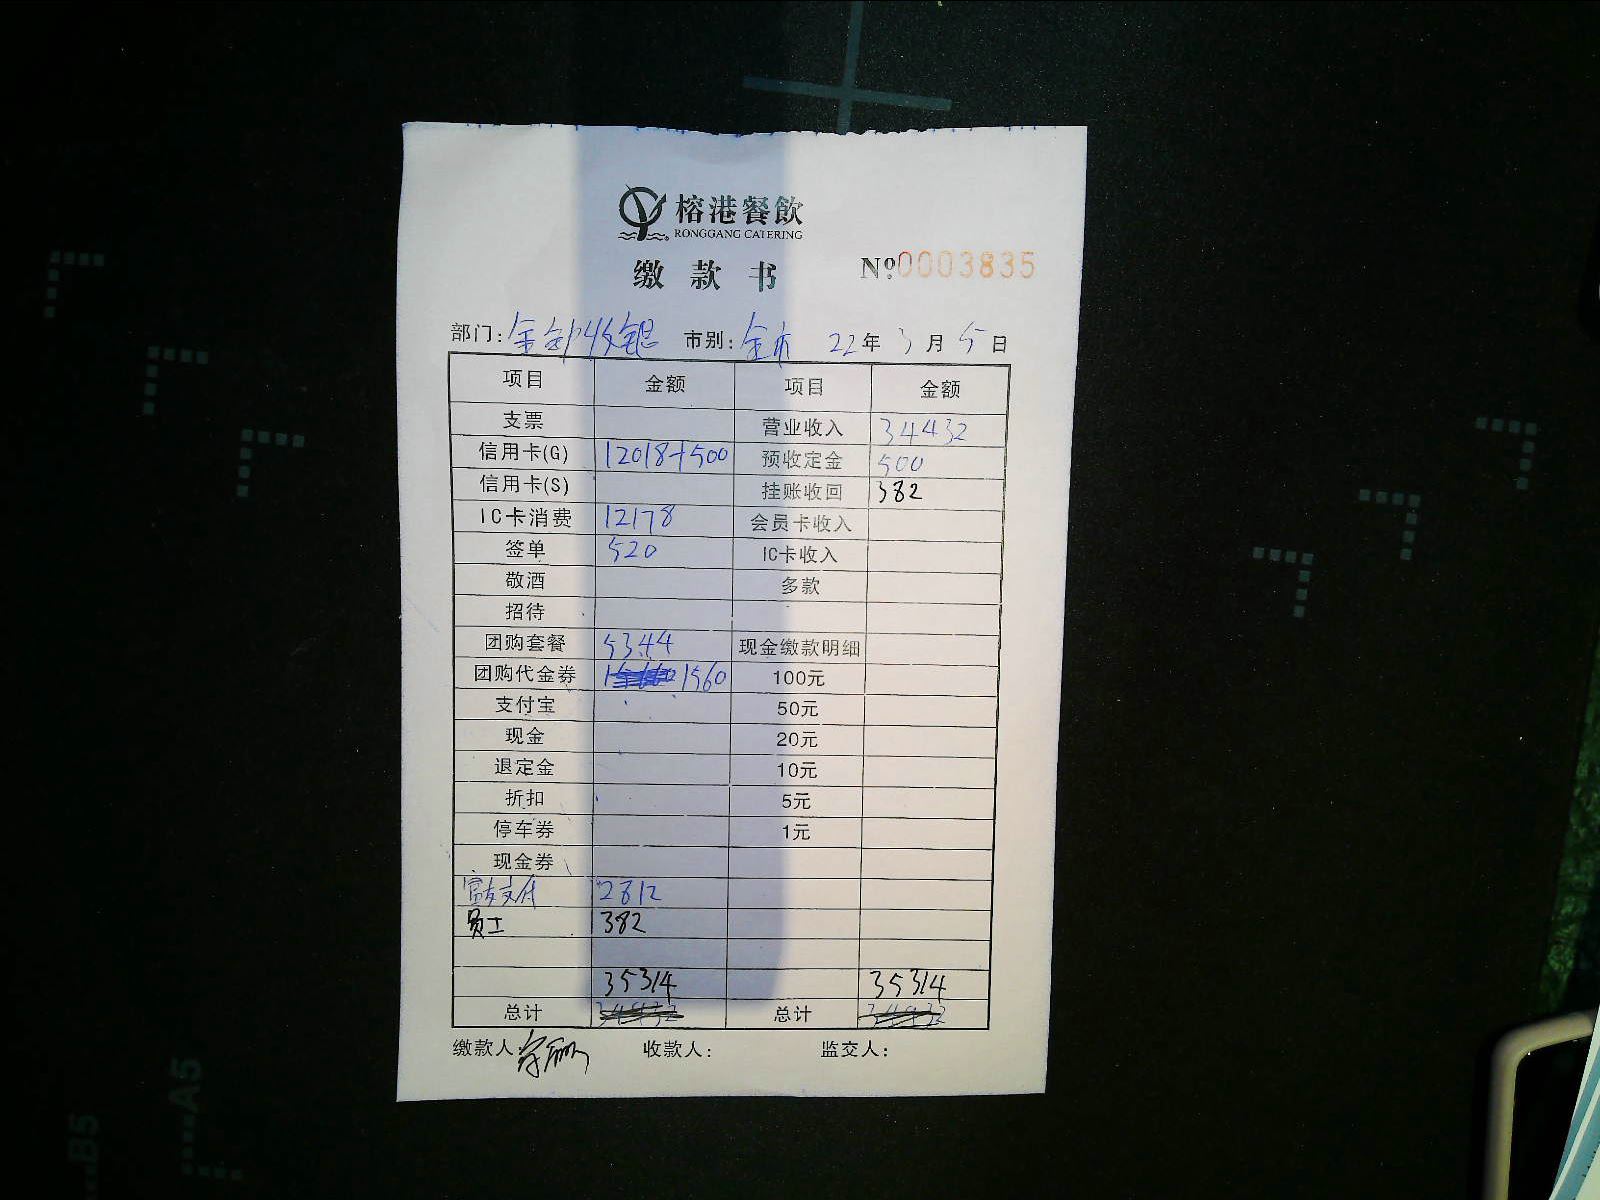 榕港餐飲
RONGGANG CATERING
缴款书 №0003835
部门: 市别:全市 22年3月5日
项目 金额 项目 金额
支票 营业收入 34432
信用卡(G) 12018+500 预收定金 500
信用卡(S) 挂账收回 382
IC卡消费 12178 会员卡收入
签单 520 IC卡收入
敬酒 多款
招待
团购套餐 5344 现金缴款明细
团购代金券 1560 100元
支付宝 50元
现金 20元
退定金 10元
折扣 5元
停车券 1元
现金券
富友支付 2812
员工 382
35314 35314
总计 总计
缴款人: 收款人: 监交人:
A5
B5